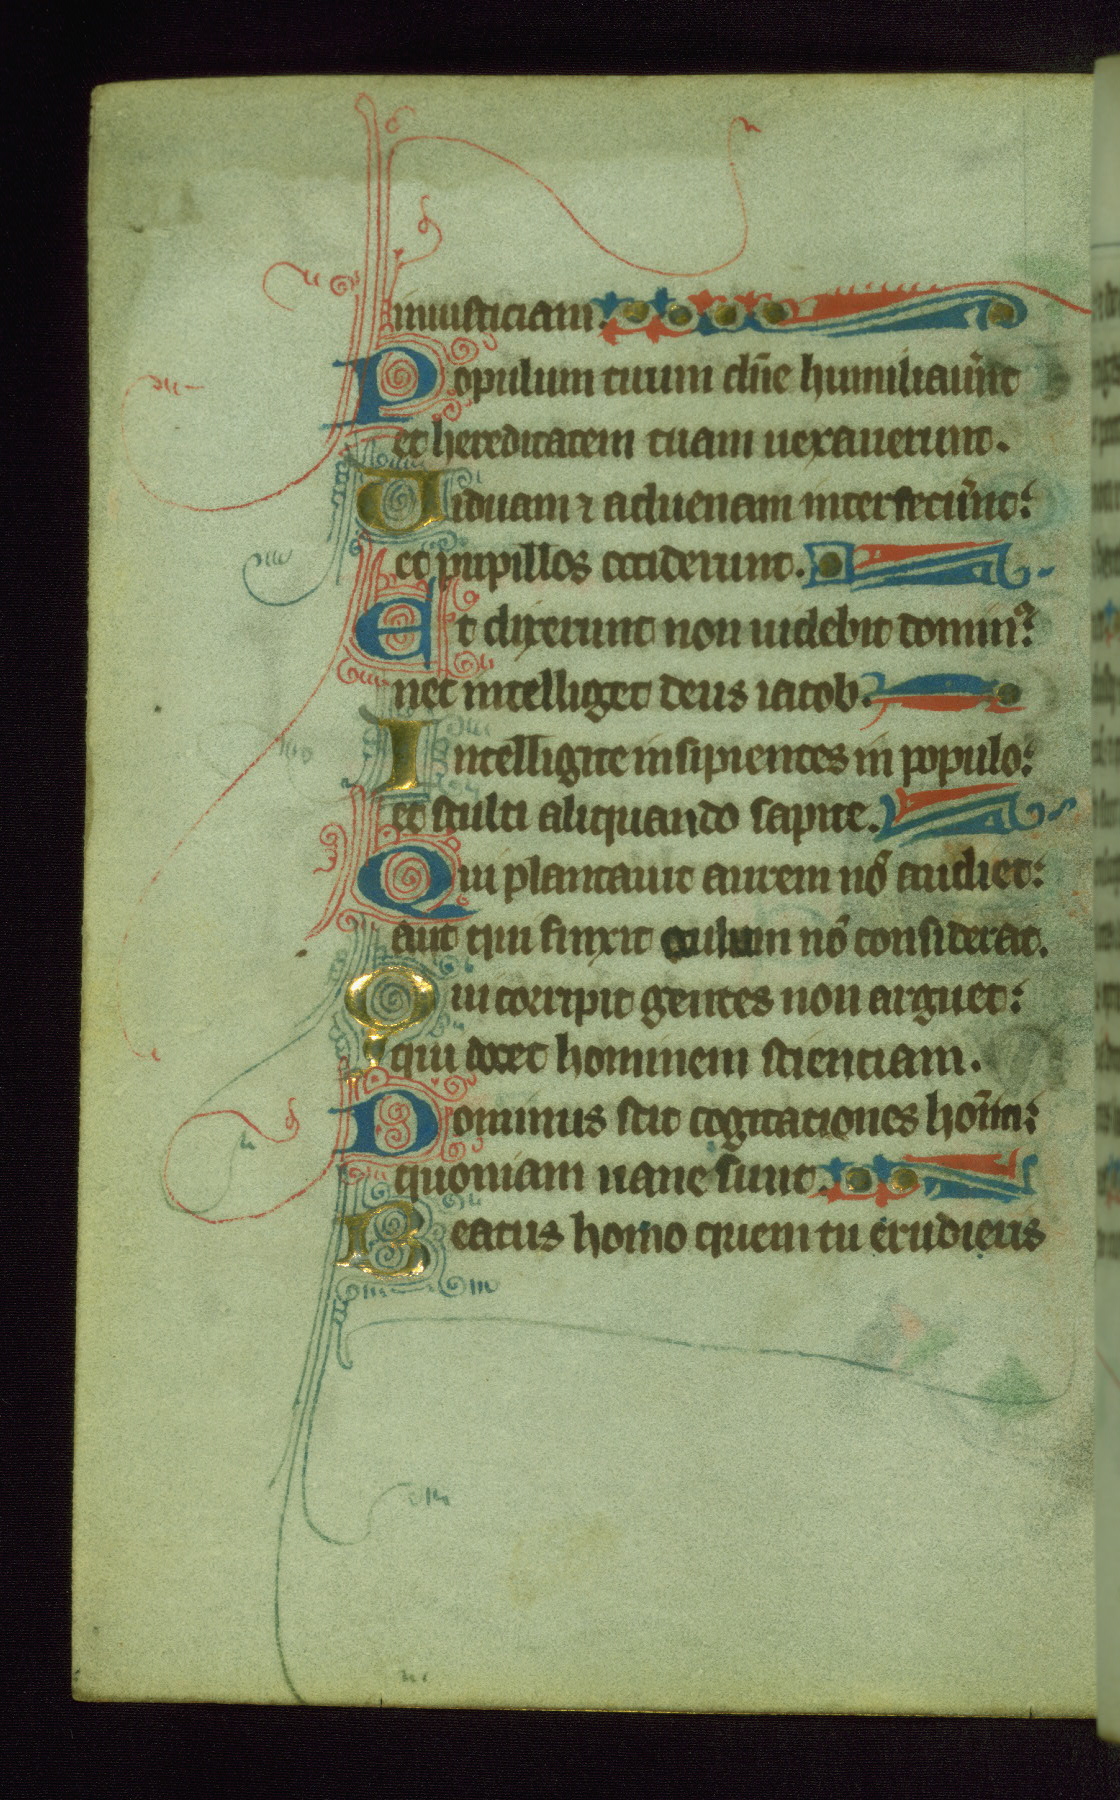 iniusticiam.
Populum tuum dn̄e humiliauer̄nt
et hereditatem tuam uexauerunt.
Uiduam ⁊ aduenam interfecer̄nt:
et pupillos occiderunt.
Et dixerunt non uidebit dominꝰ:
nec intelliget deus iacob.
Intelligite insipientes in populo:
et stulti aliquando sapite.
Qui plantauit aurem nō audiet:
aut qui finxit oculum nō considerat.
Qui corripit gentes non arguet:
qui docet hominem scienciam.
Dominus scit cogitationes hom̄i:
quoniam uane sunt.
Beatus homo quem tu erudieris